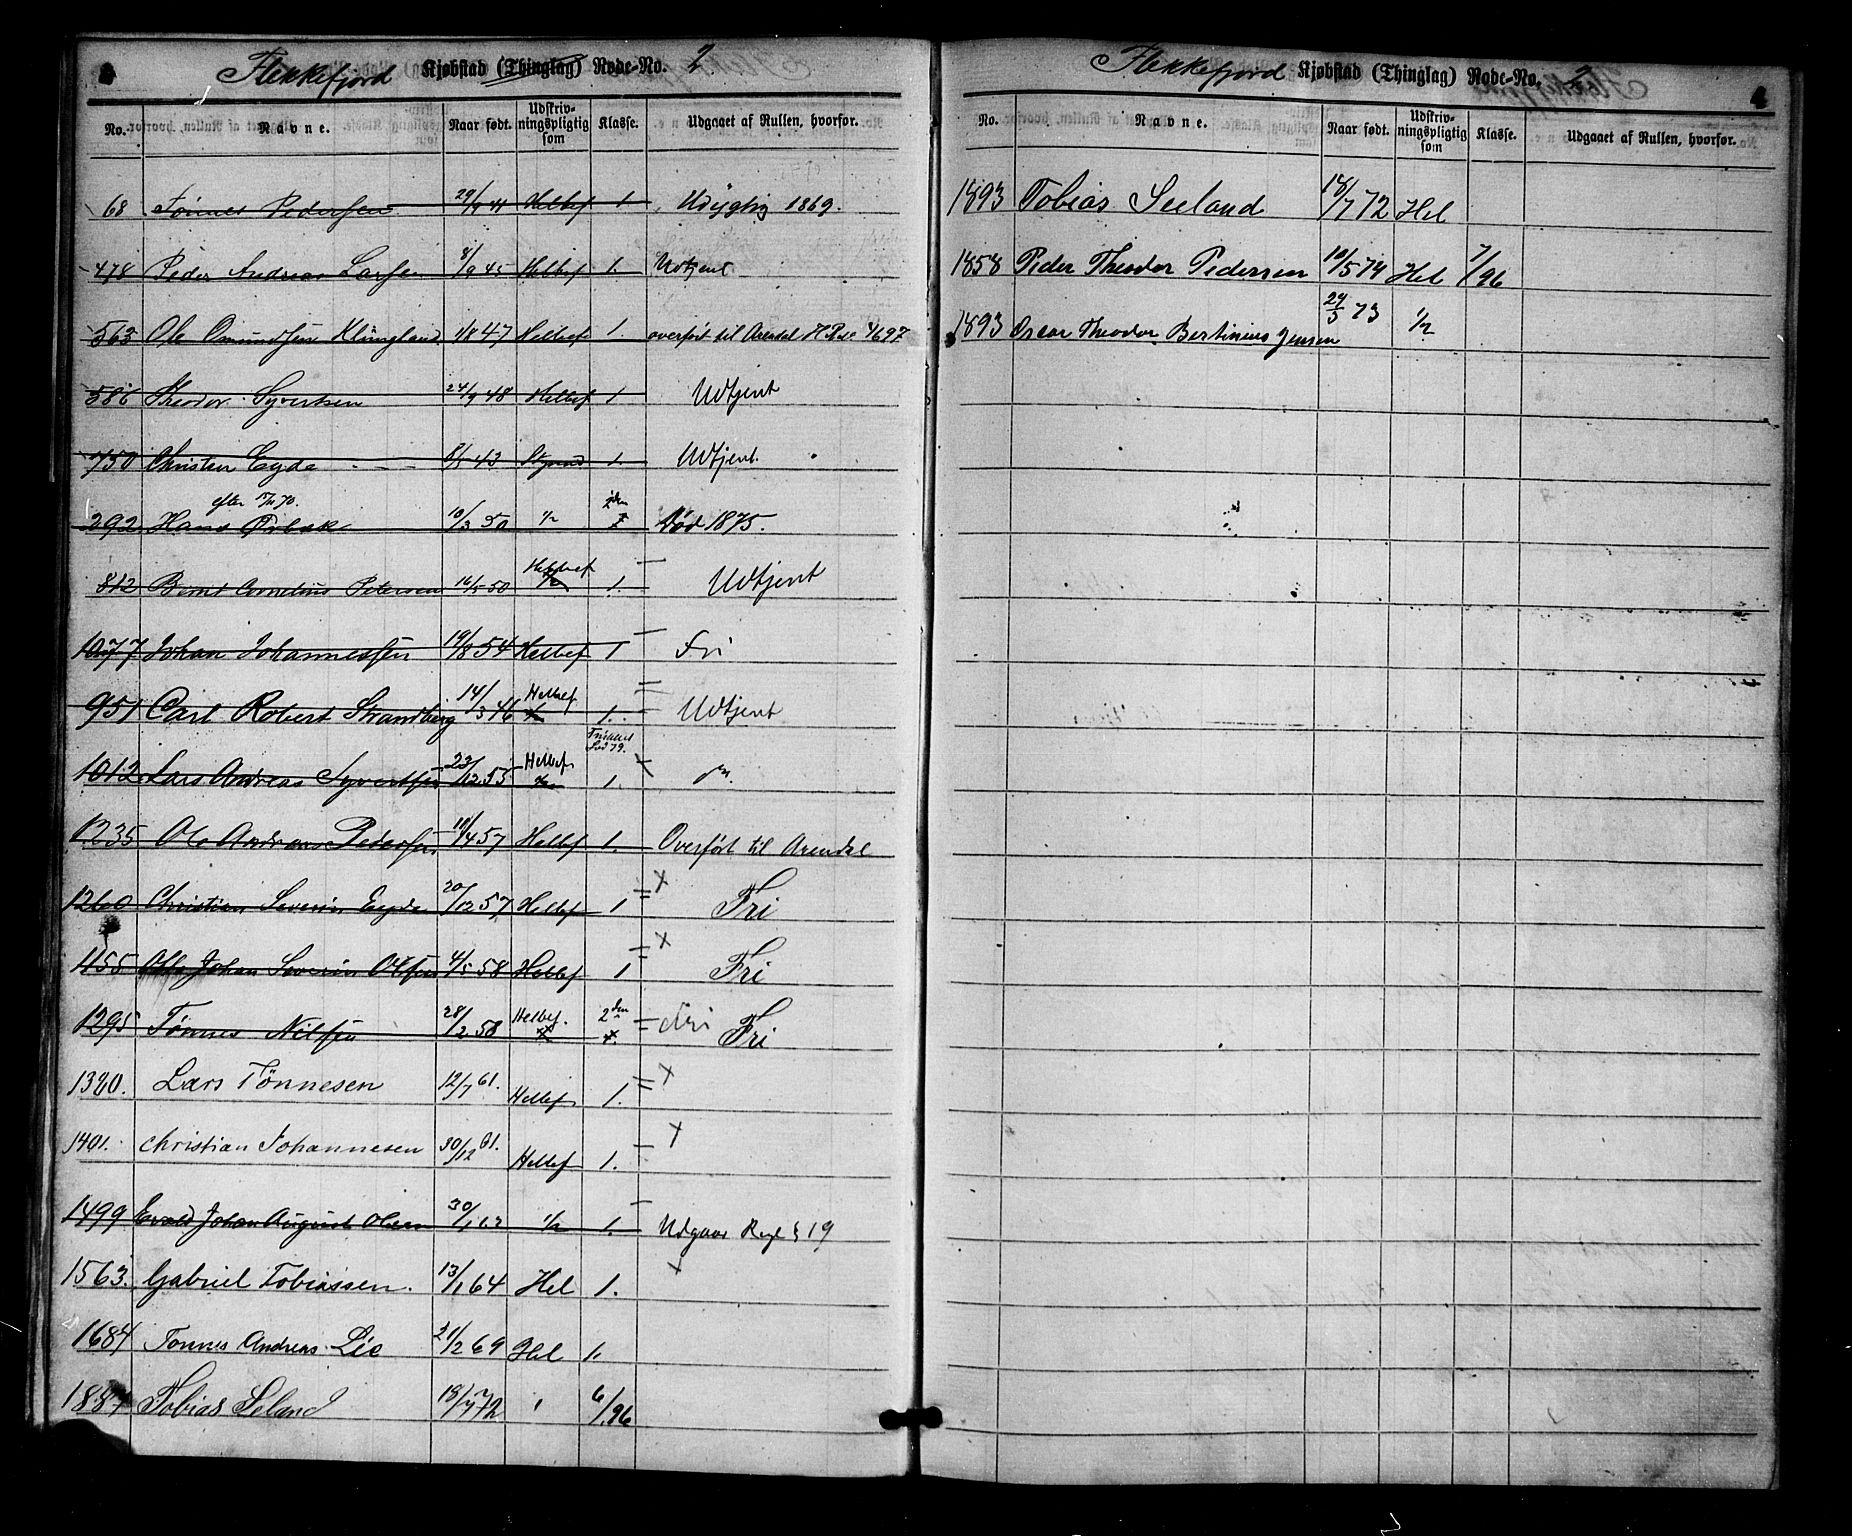 Flekkefjord Kjøbstad (Thinglag) Rode-No. 2.
No. Navne. Naar født. Udskrivningspligtig som Klasse. Udgaaet af Rullen, hvorfor.
68 Tönnes Pedersen 29/9 41 Helbef 1 Udygtig 1869.
478 Peder Andreas Larsen 8/9 45 Helbef 1. Udtjent
563 Ole Omundsen Klungland 1/8 47 Helbef 1. overført til Arendal 4697
586 Theodor Syvertsen 24/9 48 Helbef 1 Udtjent
750 Christen Eyde 43 1. Udtjent.
efter 70.
292 Hans 10/3 50 1/2 2den Död 1875.
812 Bernt Cornelius Petersen 16/5 50 Helbef 1. Udtjent
1077 Johan Johannessen 19/8 54 Helbef 1 Fri
951 Carl Robert Strandberg 14/3 46 Helbef 1. Udtjent
1012 Lars Andreas Syvertsen 23/12 55 Helbef 1.
1235 Ole Andreas Pedersen 10/4 57 Helbef 1. Overført til Arendal
1260 Christian Severin Eyde 20/12 57 Helbef 1 Fri
455 Johan Severin Olsen 4/5 58 Helbef 1 Fri
1295 Tönnes Nilsen 28/2 58 Helbef. 2den Fri Fri
1320. Lars Tönnesen 12/7 61. Helbef 1.
1401. Christian Johannesen 30/12 61. Helbef 1.
1499 Evald Johan August Olsen 30/1 62 1/2 1. Udgaar Regl § 19
1563. Gabriel Tobiassen. 13/1 64 Hel 1.
1684 Tonnes Andreas Lie 21/2 69 Hel 1.
1887 Tobias Seland 18/7 72 6/96
Flekkefjord Kjøbstad (Thinglag) Rode-No. 2
No. Navne. Naar født. Udskrivningspligtig som Klasse. Udgaaet af Rullen, hvorfor.
1893 Tobias Seeland 18/7 72 Hel
1858 Peder Theodor Pedersen 10/5 74 Hel 7/96
1893 Oscar Theodor Bertinius Jensen 29/3 73 1/2